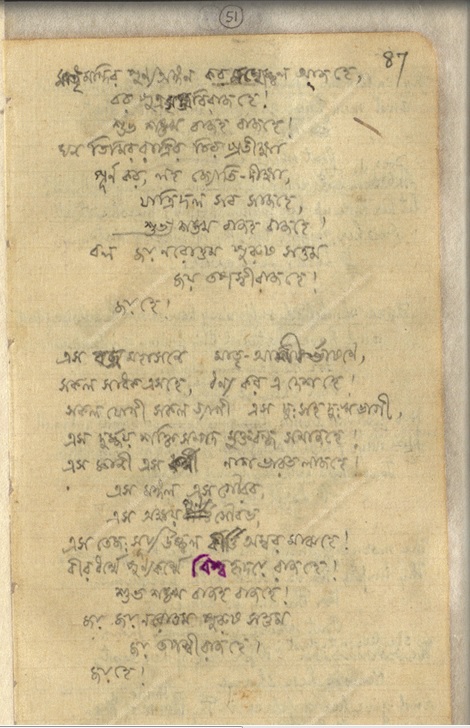 51
87
মাতৃমন্দির পুণ্য অঙ্গন কর মহোজ্জ্বল আজ হে,
বর পুত্রসঙ্ঘ বিরাজ হে!
শুভ শঙ্খ বাজহ বাজহে!
ঘন তিমিররাত্রির চির প্রতীক্ষা
পূর্ণ কর, লহ জ্যোতি-দীক্ষা,
যাত্রিদল সব সাজহে,
শুভ শঙ্খ বাজহ বাজহে!
বল জয় নরোত্তম পুরুষ সত্তম
জয় তপস্বীরাজ হে!
জয় হে!
এস বজ্র মহাসনে মাতৃ-আশীর্ভাষণে,
সকল সাধক এসহে, ধন্য কর এ দেশ হে!
সকল যোগী সকল ত্যাগী এস দুঃসহ দুঃখভাগী,
এস দুর্জয় শক্তিসম্পদ মুক্তবন্ধ সমাজ হে!
এস জ্ঞানী এস কর্মী নাশ ভারত লাজ হে!
এস মঙ্গল এস গৌরব,
এস অক্ষয় পুণ্য সৌরভ,
এস তেজঃসূর্য্য উজ্জ্বল কীর্তি অম্বর মাঝ হে!
বীরধর্মে পুণ্যকর্মে বিশ্ব হৃদয়ে রাজ হে!
শুভ শঙ্খ বাজহ বাজহে!
জয় জয় নরোত্তম পুরুষ সত্তম
জয় তপস্বীরাজ হে!
জয় হে!